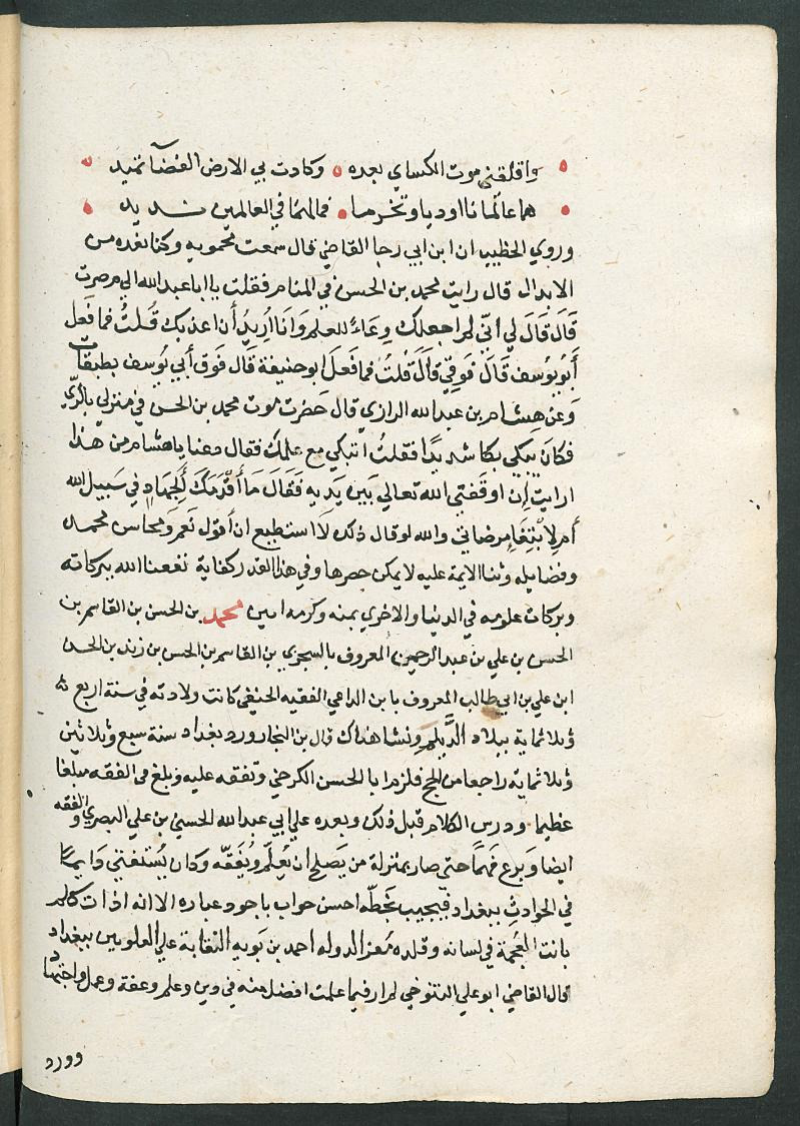 واقلقني موت الكساي بعده وكادت بي الارض الفضآ تميد
هما عالمانا اوديا وتخرما فمالهما في العالمين نديد
وروي الخطيب ان ابن ابي رجا القاضي قال سمعت محمويه وكنا نعده من
الابدال قال رايت محمد بن الحسن في المنام فقلت يا ابا عبد الله الي مر صرت
قَالَ قَالَ لي اني لم اجعلك وِعَاءً للعلم وَانَا اُرِيدُ أن اعذبك قُلتُ فما فَعل
أَبُويُوسف قَالَ فَوقي قَالَ قُلتُ فما فَعلَ ابو حنيفة قَال فَوق أبي يُوسف بطبقات
وَعن هِشام بن عبد الله الرازي قال حَضرت موت محمد بن الحسن في منزلي بالري
فكَانَ يبكي بكا شديدًا فقلتُ اتبكي مع علمك فقال دعنا يا هشام من هذا
ارايت إن اوقفني الله تعالي بَين يَديه فَقَال مَا أقْدَمَكَ الِجهادِ في سَبيل الله
أم لابتغاء مرضاتي والله لو قال ذلك لا استطيع ان أقول نَعم ومحاسن محمد
وفضايله وثنا الايمة عليه لا يمكن حصرها وفي هذا القدر كفاية نفعنا الله ببركاته
وبركات علومه في الدنيا والاخري بمنه وكرمه امين محمد بن الحسن بن القاسم بن
الحسن بن علي بن عبد الرحمن المعروف بالسجزي بن القاسم بن الحسن بن زيد بن الحسن
ابن علي بن ابي طالب المعروف بابن الداعي الفقيه الحنفي كانت ولادته في سنة اربع
وثلاثماية ببلاد الدَّيلم ونشا هناك قال بن النجار ورد بغداد سنة سبع وثلاثين
وثلاثماية راجعا من الحج فلزم ابا الحسن الكرخي وتفقه عليه وبلغ في الفقه مبلغا
عظيما ودرس الكلام قبل ذلك وبعده علي ابي عبد الله الحسين بن علي البصري والفقه
ايضا وَبرع فَهمًا حتي صار بمنزلة من يَصلح ان يُعلّم ويُفَقّه وكان يُستفتي دَايمًا
في الحَوادثِ ببغداد فيجيب بخطّه احسن جواب باجود عباره الا انه اذا تكلم
بانت العُجمة في لسانه وقلده مُعز الدوله احمد بن بُويه النقابة علي العلويين ببغداد
قال القاضي ابو علي التنوخي لم ار فيما علمت افضل منه في دين وعلم وعفة وعمل واجتهاد
وورد